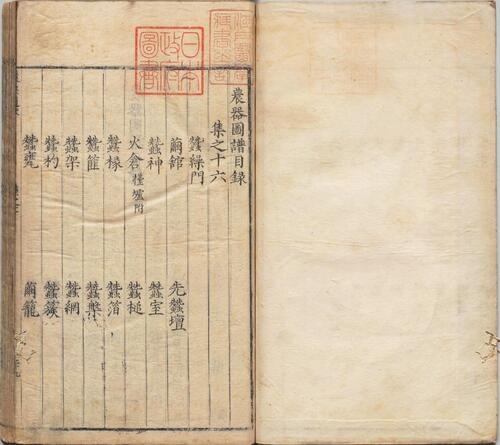 日本
政府
圖書
農器圖譜目錄
集之十六
蠶繅門
繭館 先蠶壇
蠶神 蠶室
火倉 擡爐附 蠶槌
蠶椽 蠶箔
蠶筐 蠶槃
蠶架 蠶網
蠶杓 蠶簇
蠶甕 繭籠